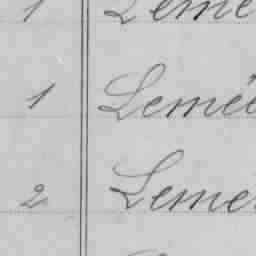 1 Leme
1 Lemé
2 Leme